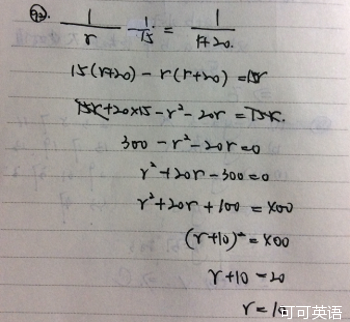 1/r - 1/15 = 1/r+20.
15(r+20) - r(r+20) = 15r
15r+20×15-r²-20r = 15r.
300-r²-20r=0
r²+20r-300=0
r²+20r+100=400
(r+10)²=400
r+10=20
r=10
可可英语